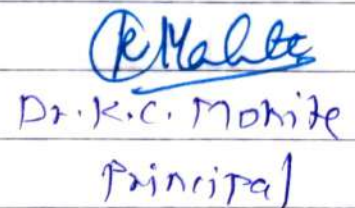 KMohite
Dr. K.C. Mohite
Principal